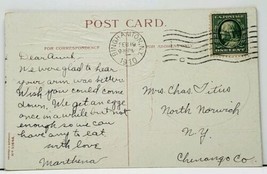 POST CARD.
FOR CORRESPONDENCE
BINGHAMTON, N.Y.
FEB 19
1910
Dear Aunt.
We were glad to hear
your arm was better.
Wish you could come
down. We get an egg
once in a while but not
enough so we can
have any to eat
with love
Marthena
Mrs. Chas Titus
North Norwich
N.Y.
Chenango Co.